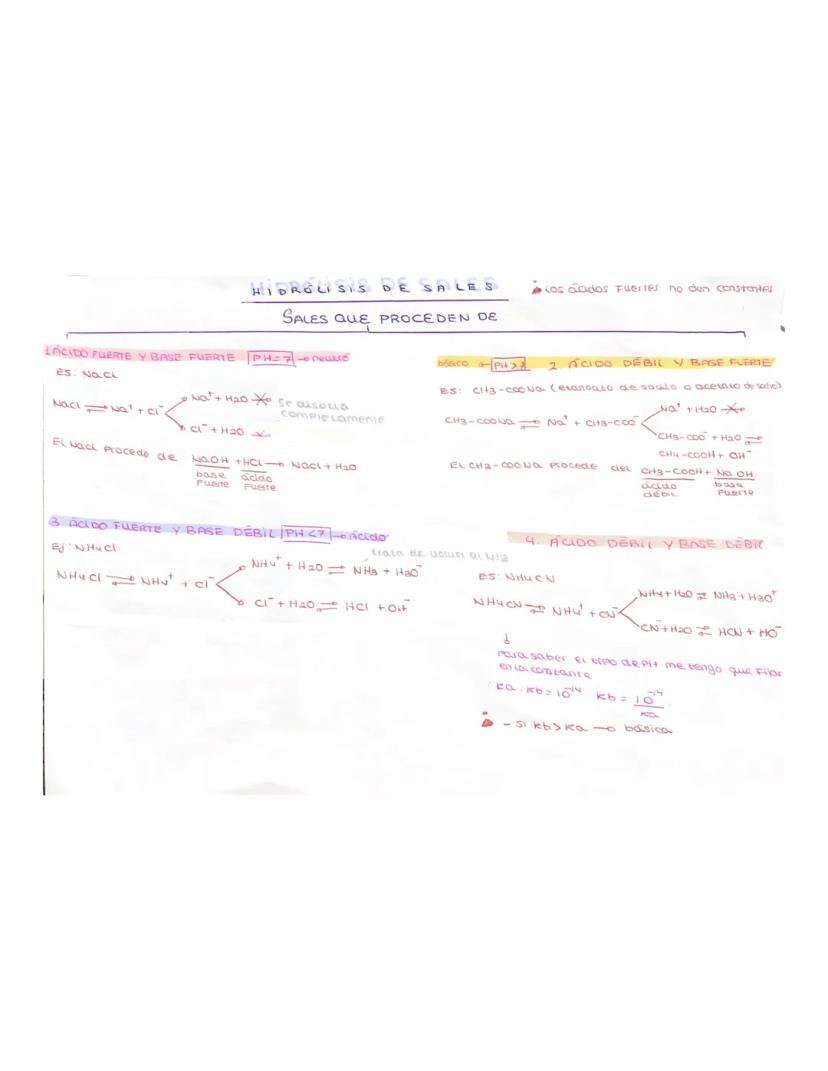 HIDRÓLISIS DE SALES
Los ácidos fuertes no dan constantes
SALES QUE PROCEDEN DE
1 ÁCIDO FUERTE Y BASE FUERTE PH=7 → neutro
ES: NaCl
NaCl ⇌ Na⁺ + Cl⁻
Na⁺ + H2O
Cl⁻ + H2O
Se disocia
completamente
El NaCl procede de NaOH + HCl → NaCl + H2O
base fuerte
ácido fuerte
básico ← PH>7 2 ÁCIDO DÉBIL Y BASE FUERTE
ES: CH3-COONa (etanoato de sodio o acetato de sodio)
CH3-COONa ⇌ Na⁺ + CH3-COO⁻
Na⁺ + H2O
CH3-COO⁻ + H2O ⇌
CH4-COOH + OH⁻
EL CH3-COONa procede del CH3-COOH + NaOH
ácido débil
base fuerte
3 ÁCIDO FUERTE Y BASE DÉBIL PH<7 → ácido
Ej: NH4Cl
trata de volver al NH3
NH4Cl ⇌ NH4⁺ + Cl⁻
NH4⁺ + H2O ⇌ NH3 + H3O⁺
Cl⁻ + H2O ⇌ HCl + OH⁻
4. ÁCIDO DÉBIL Y BASE DÉBIL
ES: NH4CN
NH4CN ⇌ NH4⁺ + CN⁻
NH4 + H2O ⇌ NH3 + H3O⁺
CN⁻ + H2O ⇌ HCN + HO⁻
↓
Para saber el tipo de PH me tengo que fijar
en la constante
ka · kb = 10⁻¹⁴ kb = 10⁻¹⁴ / ka
- Si kb > ka → básica